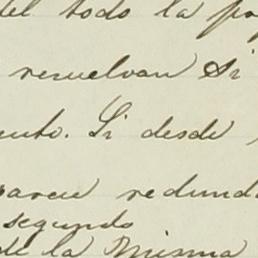 del todo la
resuelvan Si
Si desde
redund
segundo
de la Misma